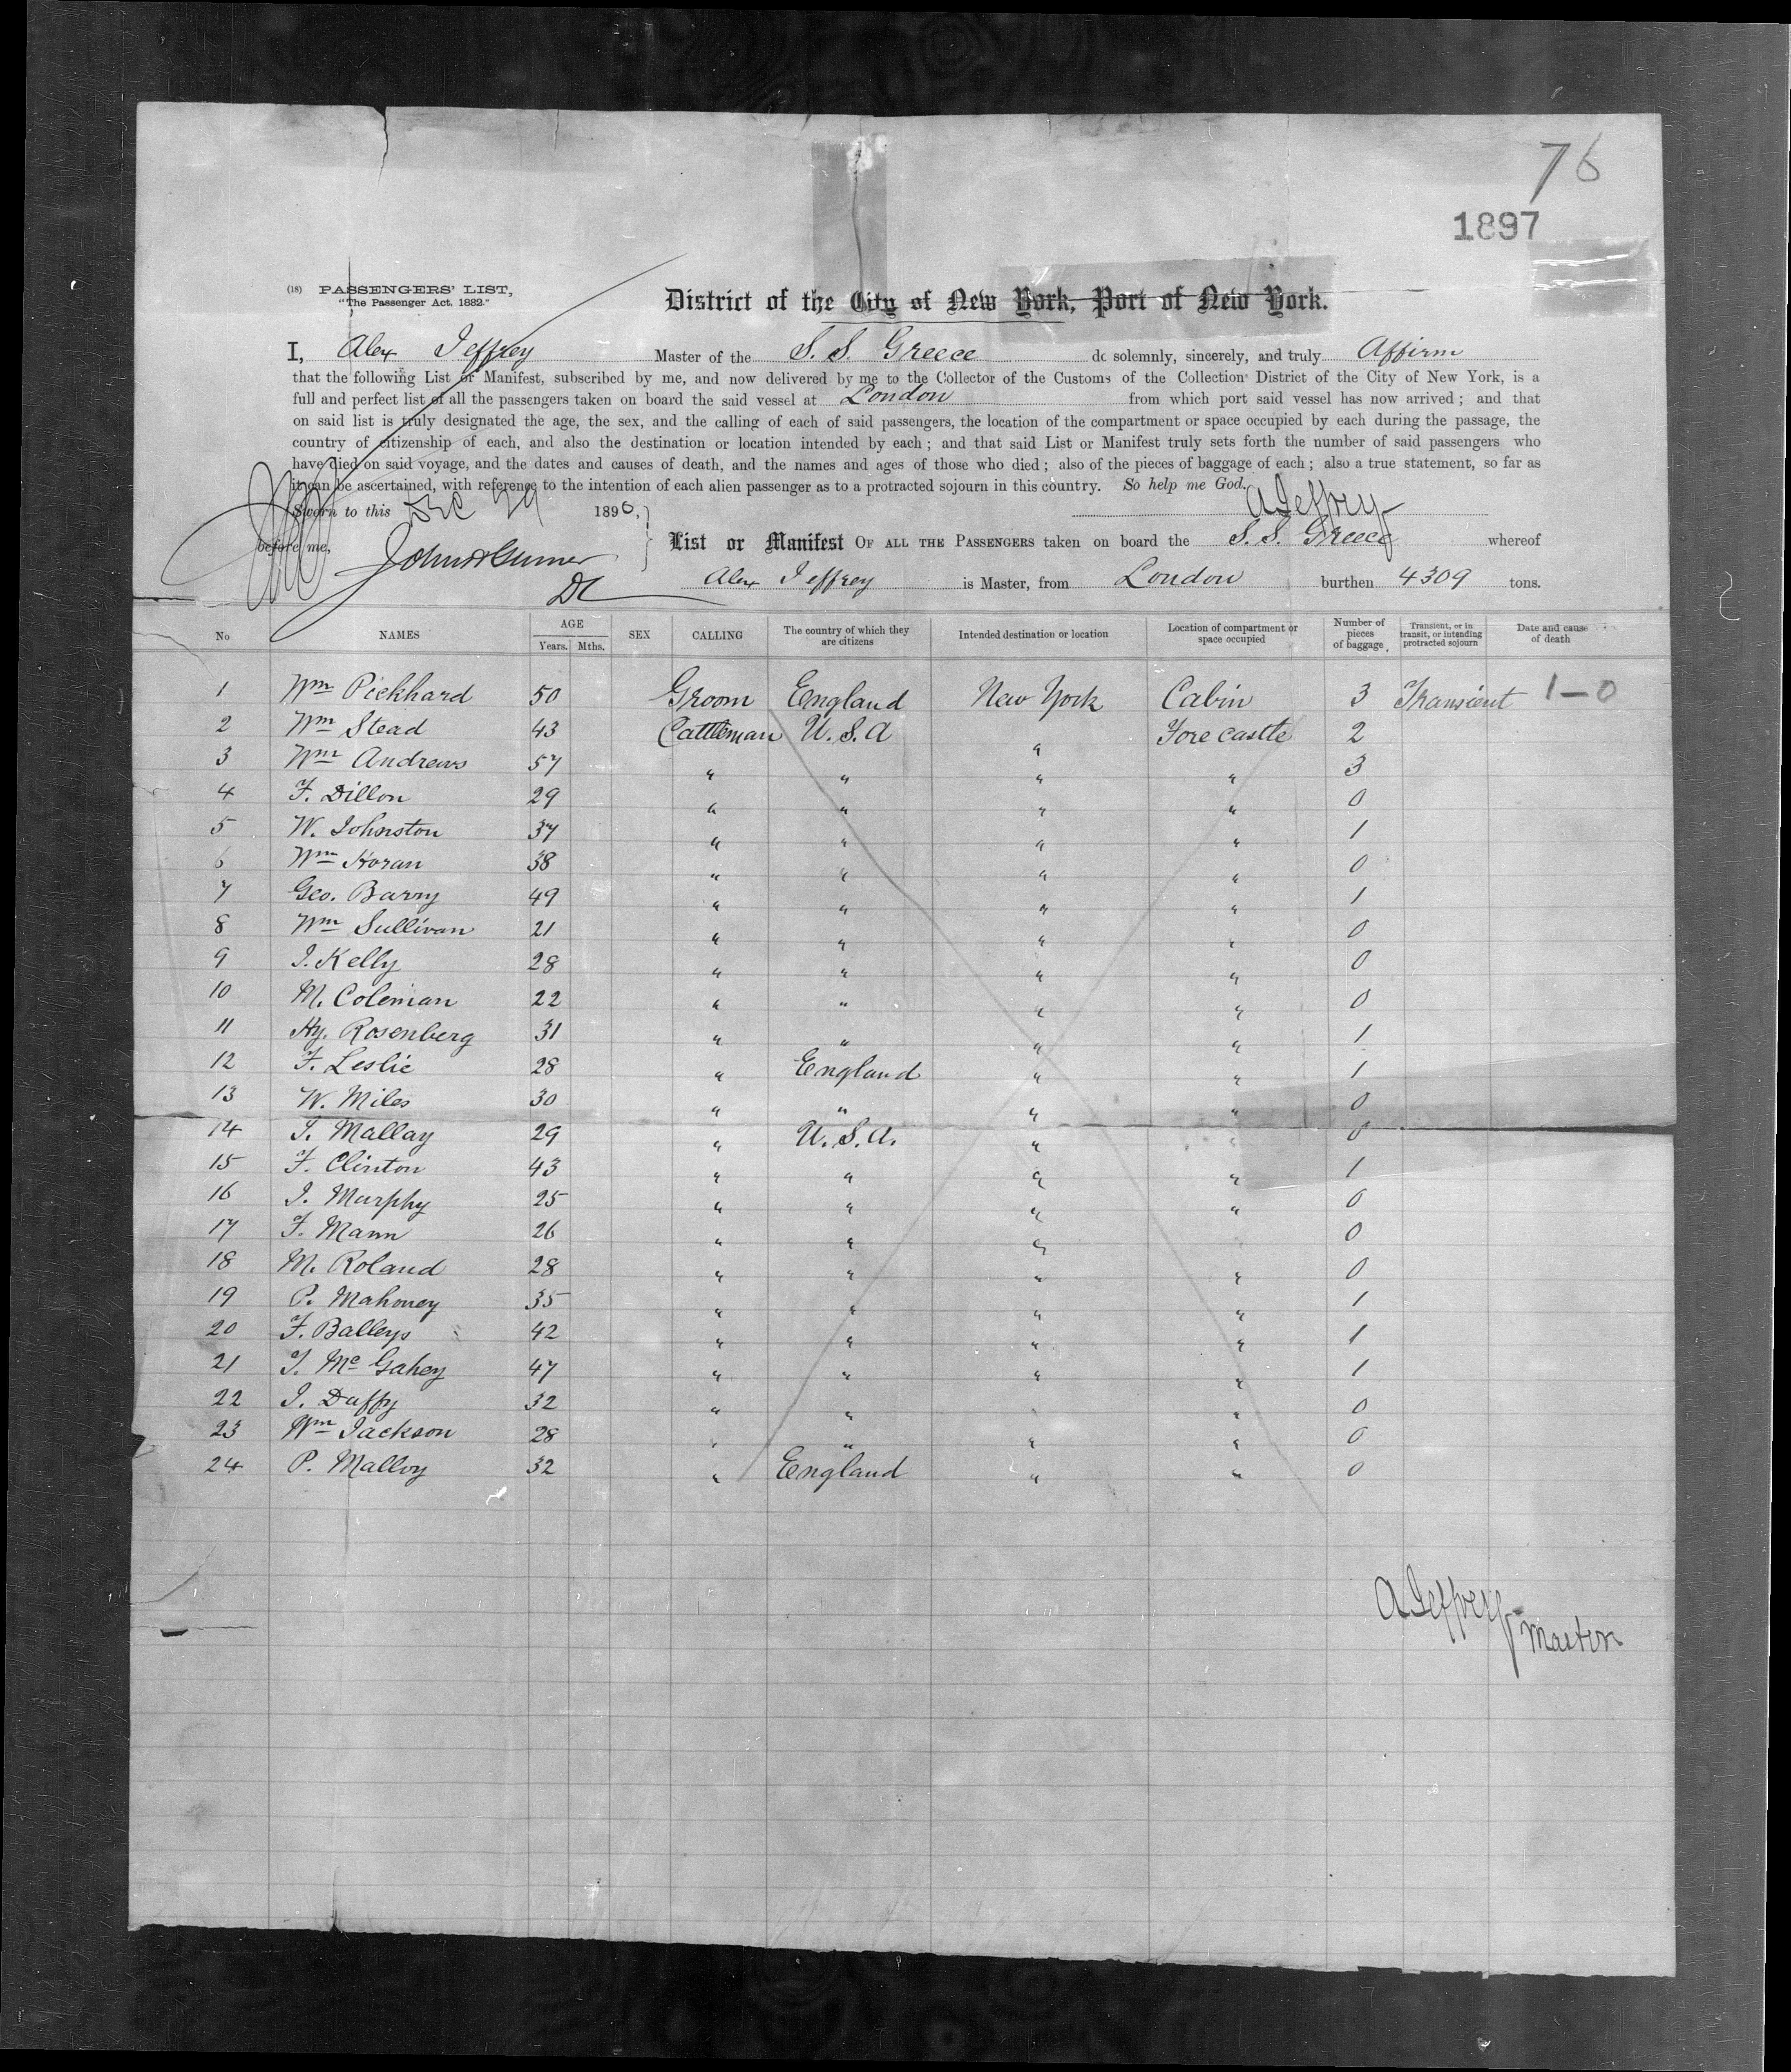 76
1897
(18) PASSENGERS' LIST,
"The Passenger Act, 1882."
District of the City of New York, Port of New York.
I, Alex Jeffrey Master of the S. S. Greece do solemnly, sincerely, and truly Affirm
that the following List or Manifest, subscribed by me, and now delivered by me to the Collector of the Customs of the Collection District of the City of New York, is a
full and perfect list of all the passengers taken on board the said vessel at London from which port said vessel has now arrived ; and that
on said list is truly designated the age, the sex, and the calling of each of said passengers, the location of the compartment or space occupied by each during the passage, the
country of citizenship of each, and also the destination or location intended by each ; and that said List or Manifest truly sets forth the number of said passengers who
have died on said voyage, and the dates and causes of death, and the names and ages of those who died ; also of the pieces of baggage of each ; also a true statement, so far as
it can be ascertained, with reference to the intention of each alien passenger as to a protracted sojourn in this country. So help me God.
A Jeffrey
Sworn to this Dec 29 1896,
before me,
DC
List or Manifest OF ALL THE PASSENGERS taken on board the S. S. Greece whereof
Alex Jeffrey is Master, from London burthen 4309 tons.
No NAMES AGE Years. Mths. SEX CALLING The country of which they are citizens Intended destination or location Location of compartment or space occupied Number of pieces of baggage Transient, or in transit, or intending protracted sojourn Date and cause of death
1 Wm Pickhard 50 Groom England New York Cabin 3 Transient 1-0
2 Wm Stead 43 Cattleman U. S. A " Fore castle 2
3 Wm Andrews 57 " " " " 3
4 F. Dillon 29 " " " " 0
5 W. Johnston 37 " " " " 1
6 Wm Horan 38 " " " " 0
7 Geo. Barry 49 " " " " 1
8 Wm Sullivan 21 " " " " 0
9 J. Kelly 28 " " " " 0
10 M. Coleman 22 " " " " 0
11 Hy. Rosenberg 31 " " " " 1
12 F. Leslie 28 " England " " 1
13 W. Miles 30 " " " " 0
14 T. Mallay 29 " U. S. A. " " 0
15 F. Clinton 43 " " " " 1
16 J. Murphy 25 " " " " 0
17 F. Mann 26 " " " 0
18 M. Roland 28 " " " " 0
19 P. Mahoney 35 " " " " 1
20 F. Balleys 42 " " " " 1
21 T. Mc Gahey 47 " " " " 1
22 J. Duffy 32 " " " 0
23 Wm Jackson 28 " " " " 0
24 P. Malloy 32 " England " " 0
A Jeffrey
Master